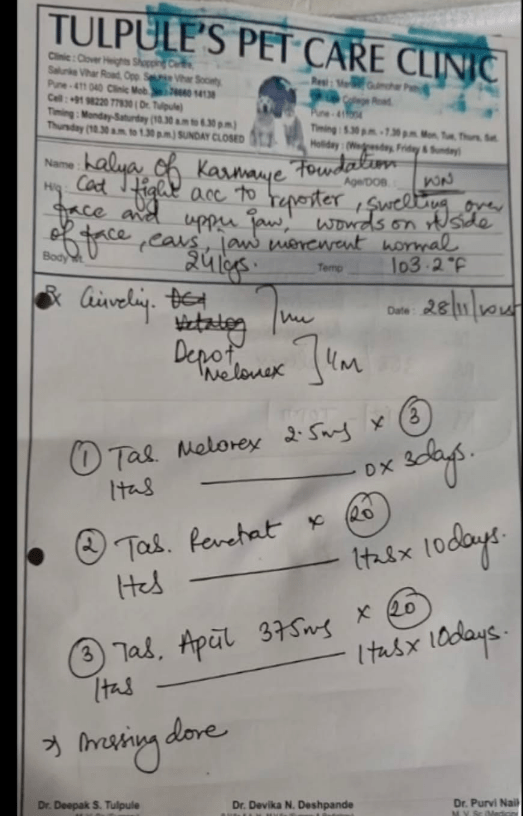 TULPULE'S PET CARE CLINIC
Clinic : Clover Heights Shopping Centre,
Salunke Vihar Road, Opp. Salunke Vihar Society,
Pune - 411 040 Clinic Mob. No.: 76660 14138
Cell : +91 98220 77930 ( Dr. Tulpule)
Timing : Monday-Saturday (10.30 a.m to 6.30 p.m.)
Thursday (10.30 a.m. to 1.30 p.m.) SUNDAY CLOSED
Resi : Gulmohar
College Road,
Pune - 411004
Timing : 5.30 p.m. - 7.30 p.m. Mon, Tue, Thurs, Sat.
Holiday : (Wednesday, Friday & Sunday)
Name : Kalya of Karmaye Foundation
Age/DOB. :
H/o fight acc to reporter, swelling over
face and upper jaw, wounds on side
of face, ears, jaw movement normal
Body wt. 24kgs. Temp 103.2°F
Rx Date : 28/11/
Depot
Melonex
① Tab. Melonex 2.5mg x ③
1tab 0 x 3days.
② Tab. x ⑳
1tab 1tab x 10days.
③ Tab. 375mg x ⑳
1tab 1tab x 10days.
Dressing done
Dr. Deepak S. Tulpule
Dr. Devika N. Deshpande
Dr. Purvi Naik